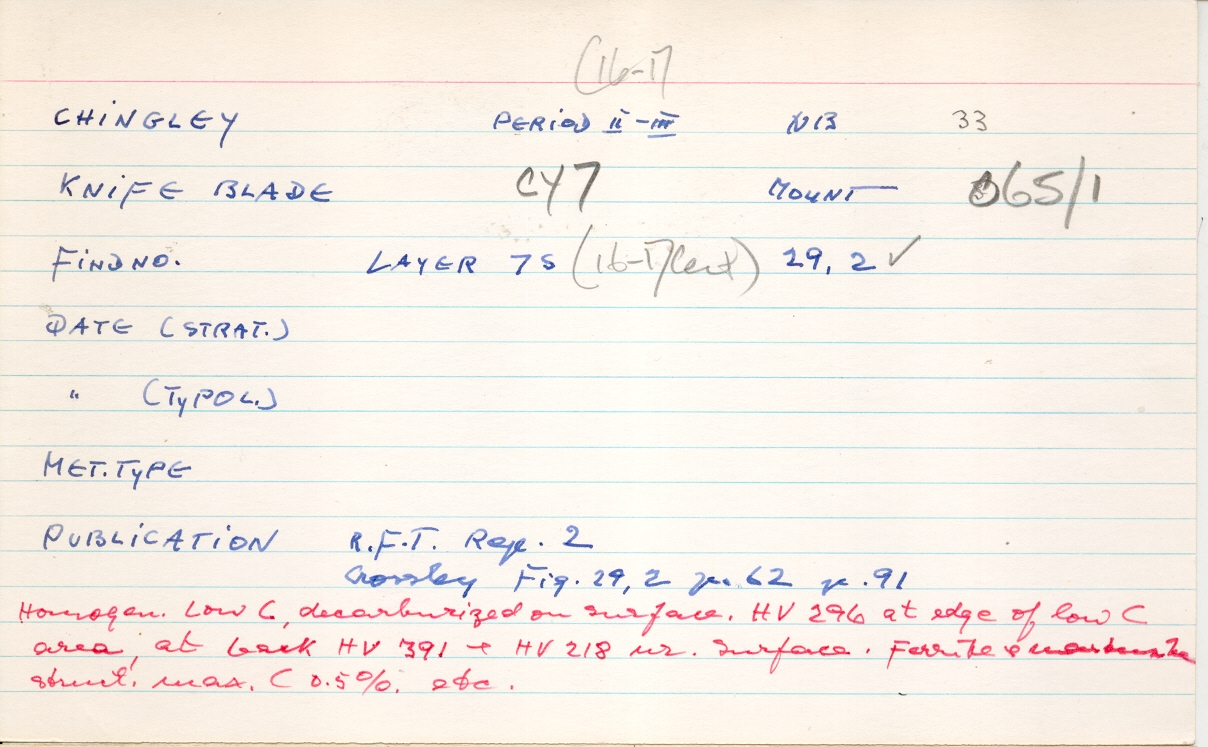 (16-17
CHiNGLEY PERIOD II-III NB 33
KNiFE BLADE CY7 MOUNT 065/1
FiNDNO. LAYER 7S (16-17 Cent) 29, 2 ✓
DATE (STRAT.)
" (TyPOL.)
MET.TyPE
PUBLiCATiON R.F.T. Rep. 2
Crossley Fig. 29, 2 p. 62 p. 91
Homogen. Low C, decarburized on surface. HV 296 at edge of low C
area, at back HV 391 → HV 218 nr. surface. Ferrite & martensite
struct. max. C 0.5%. etc.